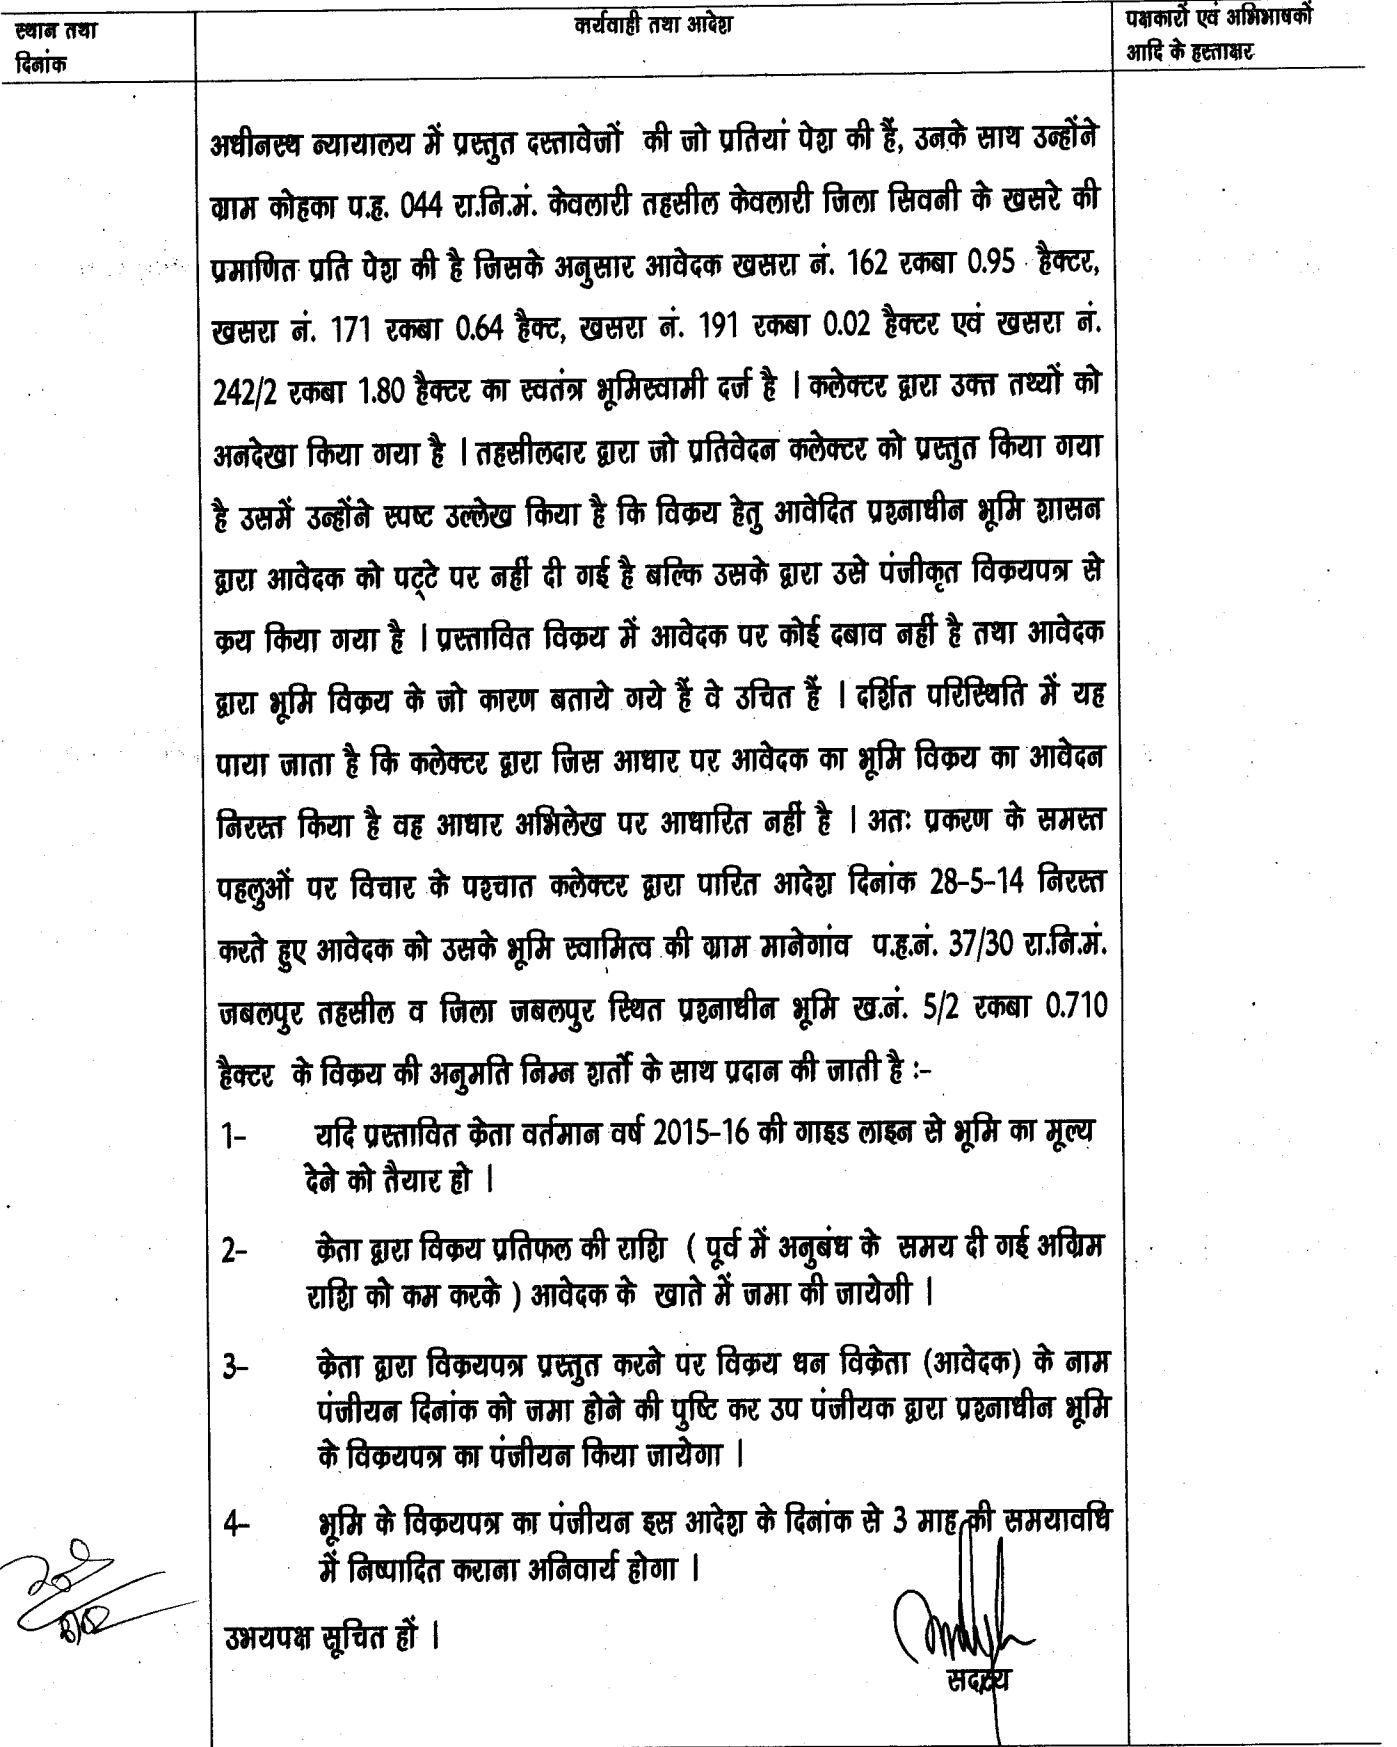 स्थान तथा
दिनांक
कार्यवाही तथा आदेश
पक्षकारों एवं अभिभाषकों
आदि के हस्ताक्षर
अधीनस्थ न्यायालय में प्रस्तुत दस्तावेजों की जो प्रतियां पेश की हैं, उनके साथ उन्होंने
ग्राम कोहका प.ह. 044 रा.नि.मं. केवलारी तहसील केवलारी जिला सिवनी के खसरे की
प्रमाणित प्रति पेश की है जिसके अनुसार आवेदक खसरा नं. 162 रकबा 0.95 हैक्टर,
खसरा नं. 171 रकबा 0.64 हैक्ट, खसरा नं. 191 रकबा 0.02 हैक्टर एवं खसरा नं.
242/2 रकबा 1.80 हैक्टर का स्वतंत्र भूमिस्वामी दर्ज है । कलेक्टर द्वारा उक्त तथ्यों को
अनदेखा किया गया है । तहसीलदार द्वारा जो प्रतिवेदन कलेक्टर को प्रस्तुत किया गया
है उसमें उन्होंने स्पष्ट उल्लेख किया है कि विक्रय हेतु आवेदित प्रश्नाधीन भूमि शासन
द्वारा आवेदक को पट्टे पर नहीं दी गई है बल्कि उसके द्वारा उसे पंजीकृत विक्रयपत्र से
क्रय किया गया है । प्रस्तावित विक्रय में आवेदक पर कोई दबाव नहीं है तथा आवेदक
द्वारा भूमि विक्रय के जो कारण बताये गये हैं वे उचित हैं । दर्शित परिस्थिति में यह
पाया जाता है कि कलेक्टर द्वारा जिस आधार पर आवेदक का भूमि विक्रय का आवेदन
निरस्त किया है वह आधार अभिलेख पर आधारित नहीं है । अतः प्रकरण के समस्त
पहलुओं पर विचार के पश्चात कलेक्टर द्वारा पारित आदेश दिनांक 28-5-14 निरस्त
करते हुए आवेदक को उसके भूमि स्वामित्व की ग्राम मानेगांव प.ह.नं. 37/30 रा.नि.मं.
जबलपुर तहसील व जिला जबलपुर स्थित प्रश्नाधीन भूमि ख.नं. 5/2 रकबा 0.710
हैक्टर के विक्रय की अनुमति निम्न शर्तो के साथ प्रदान की जाती है :-
1- यदि प्रस्तावित क्रेता वर्तमान वर्ष 2015-16 की गाइड लाइन से भूमि का मूल्य
देने को तैयार हो ।
2- क्रेता द्वारा विक्रय प्रतिफल की राशि ( पूर्व में अनुबंध के समय दी गई अग्रिम
राशि को कम करके ) आवेदक के खाते में जमा की जायेगी ।
3- क्रेता द्वारा विक्रयपत्र प्रस्तुत करने पर विक्रय धन विक्रेता (आवेदक) के नाम
पंजीयन दिनांक को जमा होने की पुष्टि कर उप पंजीयक द्वारा प्रश्नाधीन भूमि
के विक्रयपत्र का पंजीयन किया जायेगा ।
4- भूमि के विक्रयपत्र का पंजीयन इस आदेश के दिनांक से 3 माह की समयावधि
में निष्पादित कराना अनिवार्य होगा ।
उभयपक्ष सूचित हों ।
सदस्य